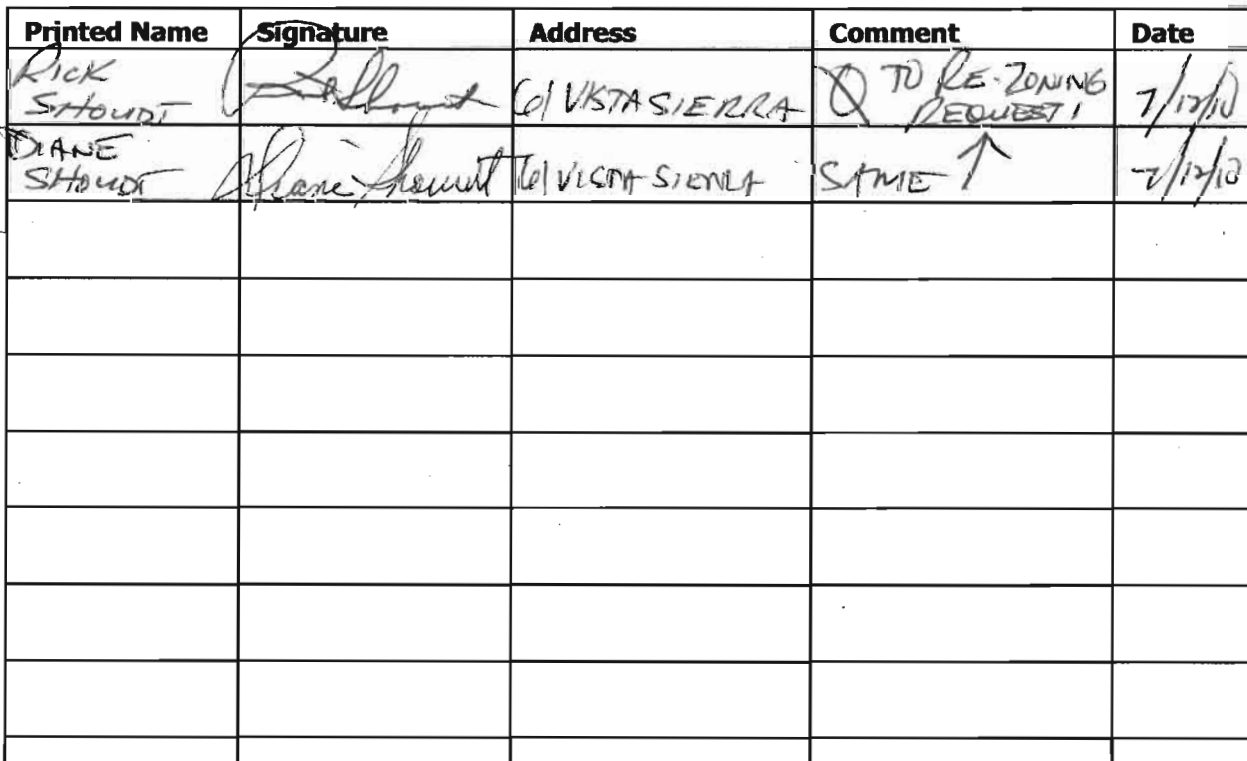 Printed Name Signature Address Comment Date
RICK
SHOUDT
61 VISTA SIERRA
TO RE-ZONING
REQUEST!
7/12/10
DIANE
SHOUDT
Diane Shoudt
61 VISTA SIERRA
SAME ↑
7/12/10